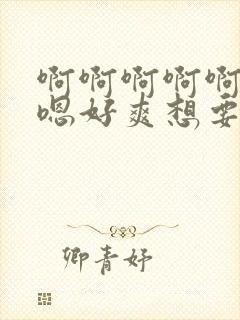 啊啊啊啊啊
嗯好爽想要
卿青妤